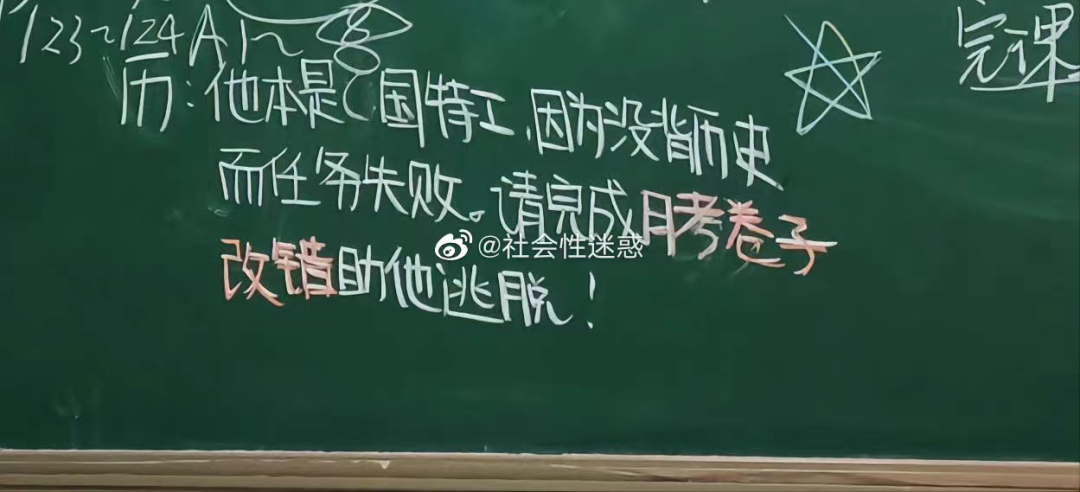 123~124 A1~8
完课
历:他本是C国特工,因为没背历史
而任务失败。请完成月考卷子
@社会性迷惑
改错助他逃脱!